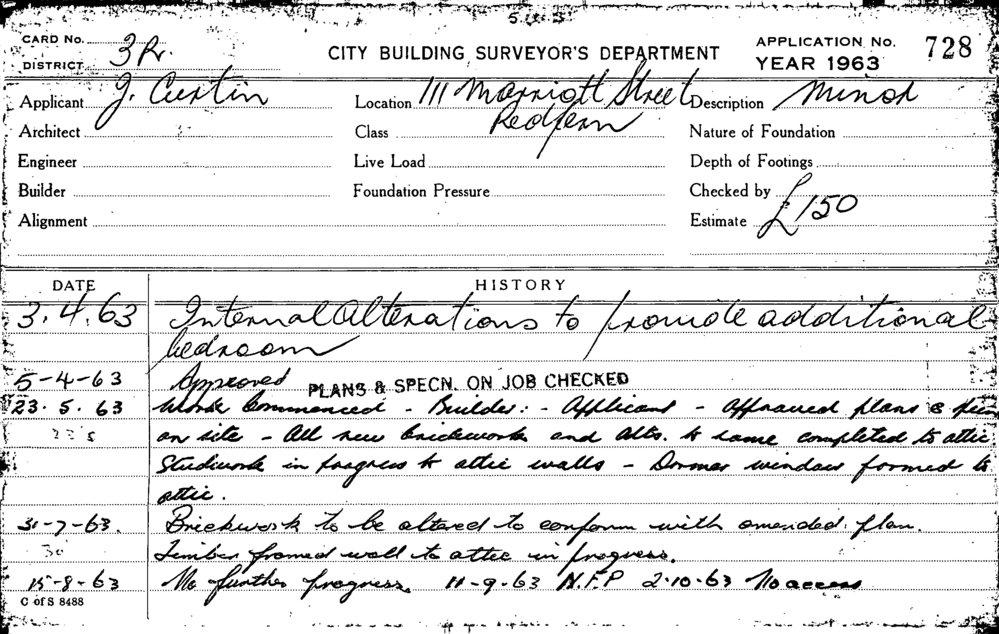 CARD No.
DISTRICT 3R.
CITY BUILDING SURVEYOR'S DEPARTMENT
APPLICATION No. 728
YEAR 1963
Applicant J. Curtin
Location 111 Marriott Street
Redfern
Description Minor
Architect
Class
Nature of Foundation
Engineer
Live Load
Depth of Footings
Builder
Foundation Pressure
Checked by
Alignment
Estimate £150
DATE HISTORY
3.4.63 Internal Alterations to provide additional
bedroom
5-4-63 Approved PLANS & SPECN. ON JOB CHECKED
23.5.63 Work Commenced - Builder:- Applicant - Approved plans & spec
on site - All new brickwork and alts. to same completed to attic
Studwork in progress to attic walls - Dormer window formed to
attic.
31-7-63. Brickwork to be altered to conform with amended plan.
Timber framed wall to attic in progress.
15-8-63 No further progress. 11-9-63 N.F.P 2-10-63 No access
C of S 8488